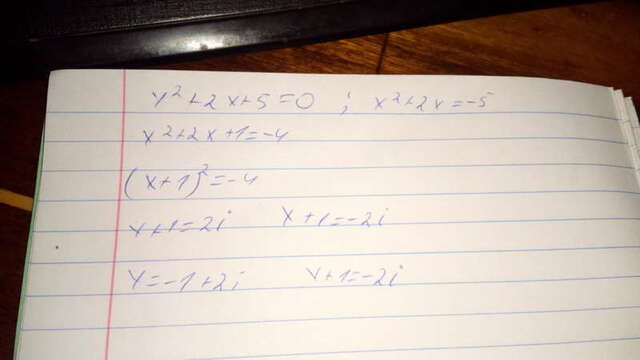 x²+2x+5=0 ; x²+2x=-5
x²+2x+1=-4
(x+1)²=-4
x+1=2i x+1=-2i
x=-1+2i x+1=-2i